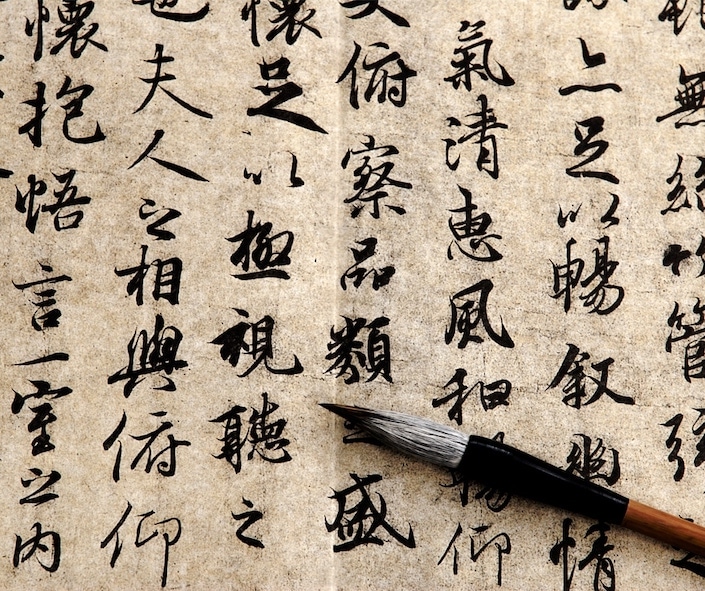 無絲竹管弦之
亦足以暢敘幽情
氣清惠風和暢仰
大俯察品類之盛
懷足以極視聽之
也夫人之相與俯仰
懷抱悟言一室之內